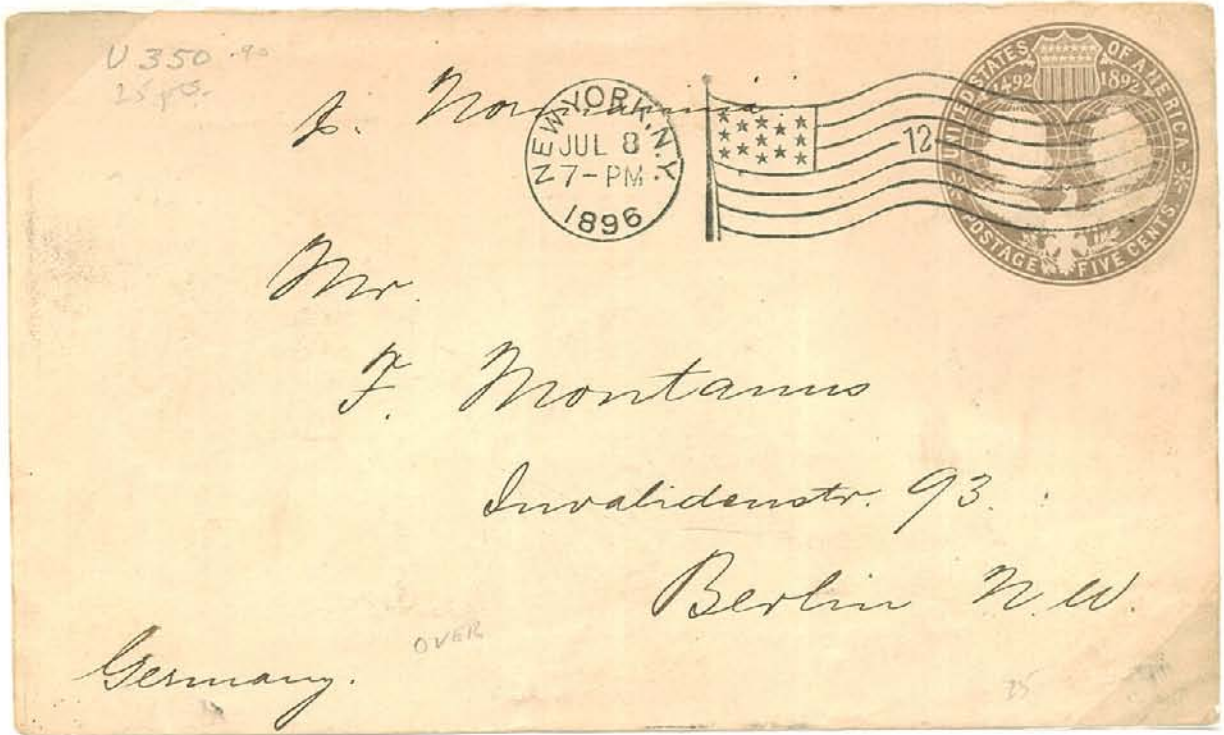 U 350 .90
p. Normannia.
NEW YORK, N.Y.
JUL 8
7-PM
1896
12
UNITED STATES OF AMERICA
1492 1892
POSTAGE FIVE CENTS
Mr.
F. Montanus
Invalidenstr. 93.
Berlin N.W.
OVER
Germany.